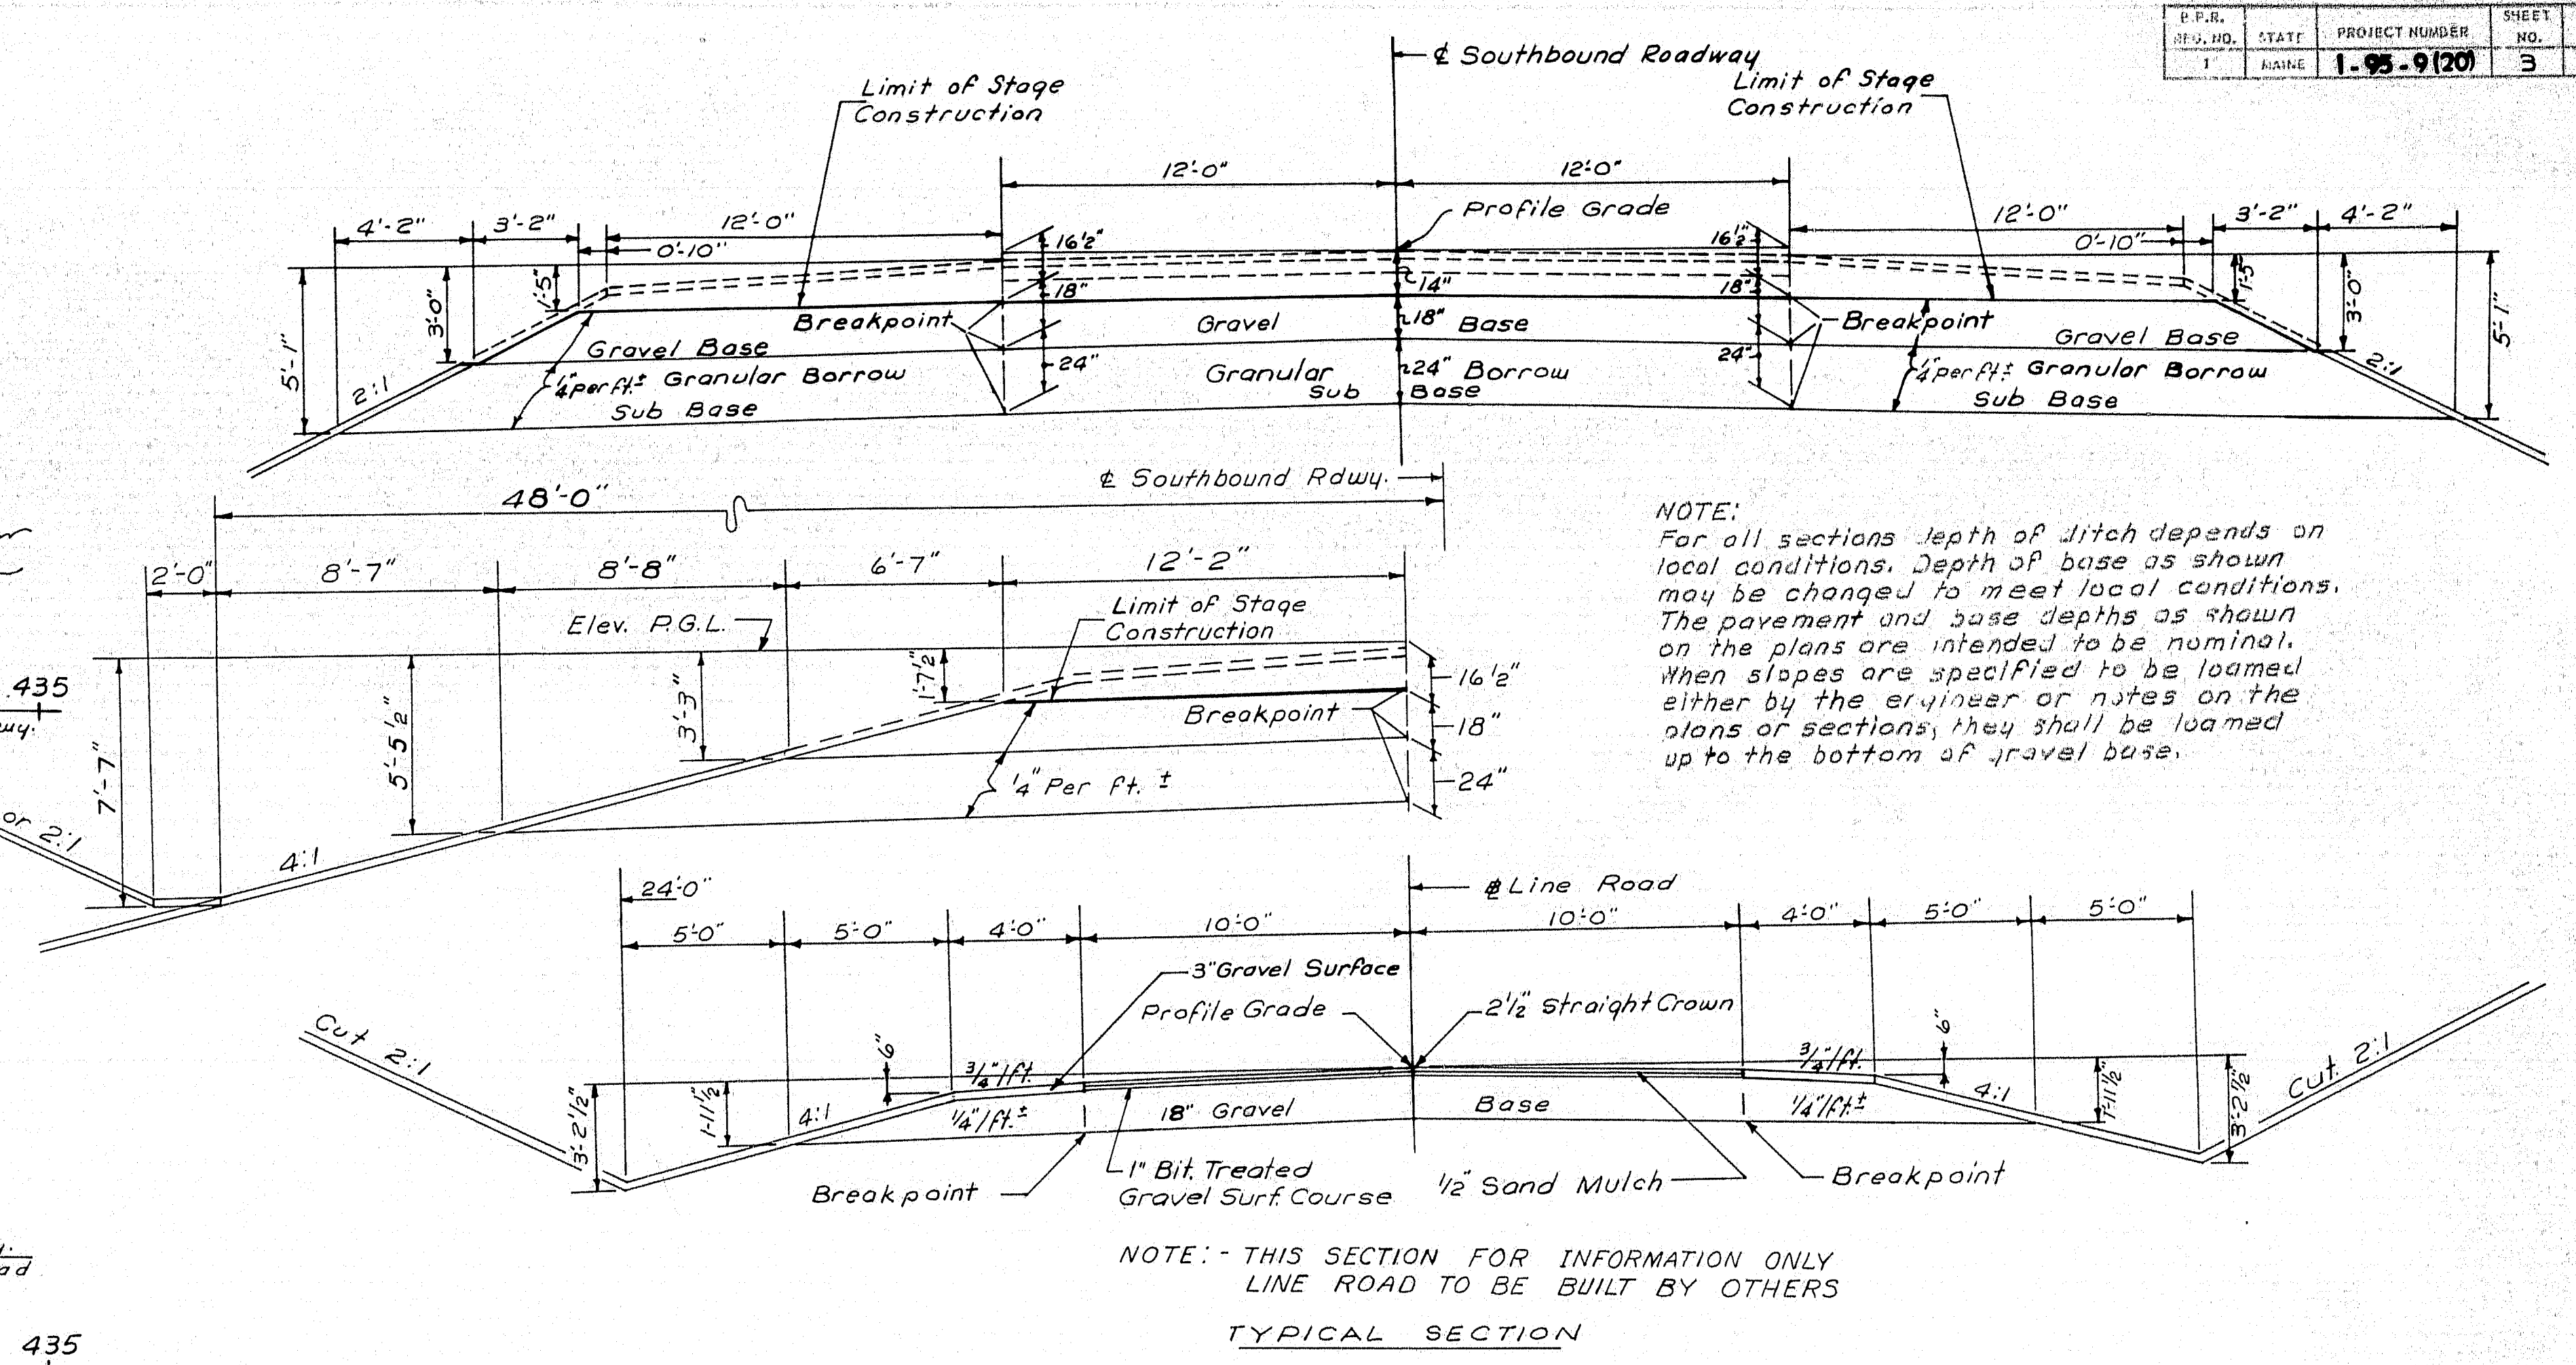 B.P.R.
REG. NO.
STATE
PROJECT NUMBER
SHEET
NO.
1
MAINE
I-95-9(20)
3
℄ Southbound Roadway
Limit of Stage
Construction
Limit of Stage
Construction
12'-0"
12'-0"
4'-2"
3'-2"
12'-0"
0'-10"
Profile Grade
12'-0"
3'-2"
4'-2"
0'-10"
16½"
16½"
1'-5"
3'-0"
5'-1"
18"
14"
18"
1'-5"
3'-0"
5'-1"
Breakpoint
Gravel
18"
Base
Breakpoint
Gravel Base
Gravel Base
24"
24"
2:1
¼" per ft.± Granular Borrow
Sub Base
Granular
24" Borrow
Sub
Base
¼" per ft.± Granular Borrow
Sub Base
2:1
℄ Southbound Rdwy.
48'-0"
2'-0"
8'-7"
8'-8"
6'-7"
12'-2"
Elev. P.G.L.
Limit of Stage
Construction
1'-7½"
3'-3"
5'-5½"
7'-7"
16½"
Breakpoint
18"
24"
¼" Per ft. ±
4:1
or 2:1
435
NOTE:
For all sections depth of ditch depends on
local conditions. Depth of base as shown
may be changed to meet local conditions.
The pavement and base depths as shown
on the plans are intended to be nominal.
When slopes are specified to be loamed
either by the engineer or notes on the
plans or sections, they shall be loamed
up to the bottom of gravel base.
24'-0"
Line Road
5'-0"
5'-0"
4'-0"
10'-0"
10'-0"
4'-0"
5'-0"
5'-0"
3" Gravel Surface
Profile Grade
2½" Straight Crown
Cut 2:1
6"
¾"/ft.
¾"/ft.
6"
Cut 2:1
3'-2½"
1'-11½"
4:1
¼"/ft.±
18" Gravel
Base
¼"/ft.±
4:1
1'-11½"
3'-2½"
Breakpoint
1" Bit. Treated
Gravel Surf. Course
½" Sand Mulch
Breakpoint
NOTE:- THIS SECTION FOR INFORMATION ONLY
LINE ROAD TO BE BUILT BY OTHERS
TYPICAL SECTION
435